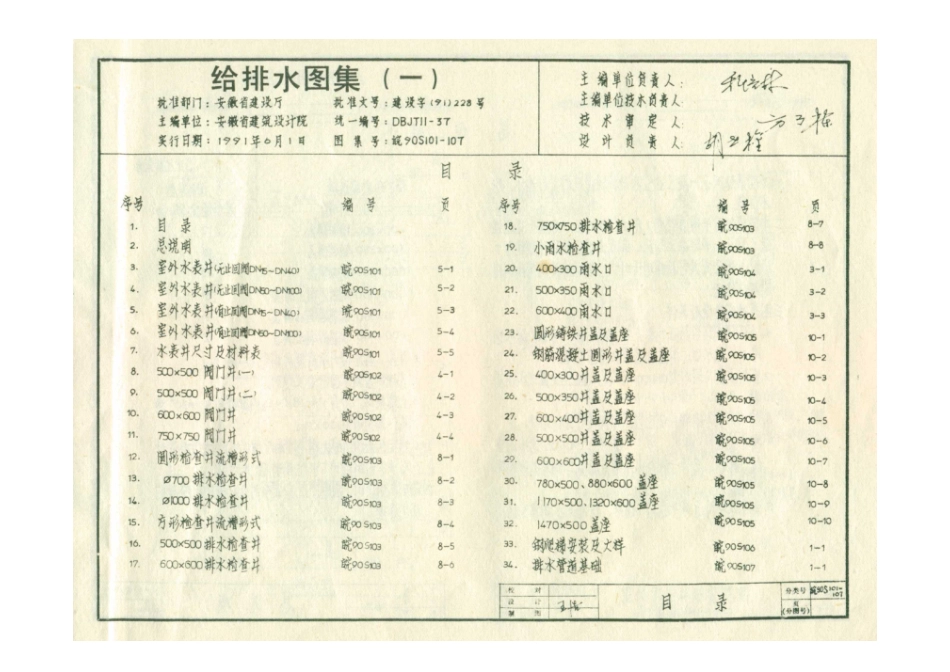 给排水图集（一）
批准部门：安徽省建设厅　批准文号：建设字(91)228号
主编单位：安徽省建筑设计院　统一编号：DBJT11-37
实行日期：1991年6月1日　图集号：皖90S101-107
主编单位负责人：
主编单位技术负责人：
技术审定人：
设计负责人：
目　录
序号　编号　页
1.　目录
2.　总说明
3.　室外水表井(无止回阀DN15~DN40)　皖90S101　5-1
4.　室外水表井(无止回阀DN50~DN100)　皖90S101　5-2
5.　室外水表井(有止回阀DN15~DN40)　皖90S101　5-3
6.　室外水表井(有止回阀DN50~DN100)　皖90S101　5-4
7.　水表井尺寸及材料表　皖90S101　5-5
8.　500×500 阀门井(一)　皖90S102　4-1
9.　500×500 阀门井(二)　皖90S102　4-2
10.　600×600 阀门井　皖90S102　4-3
11.　750×750 阀门井　皖90S102　4-4
12.　圆形检查井流槽形式　皖90S103　8-1
13.　Ø700 排水检查井　皖90S103　8-2
14.　Ø1000 排水检查井　皖90S103　8-3
15.　方形检查井流槽形式　皖90S103　8-4
16.　500×500 排水检查井　皖90S103　8-5
17.　600×600 排水检查井　皖90S103　8-6
序号　编号　页
18.　750×750 排水检查井　皖90S103　8-7
19.　小雨水检查井　皖90S103　8-8
20.　400×300 雨水口　皖90S104　3-1
21.　500×350 雨水口　皖90S104　3-2
22.　600×400 雨水口　皖90S104　3-3
23.　圆形铸铁井盖及盖座　皖90S105　10-1
24.　钢筋混凝土圆形井盖及盖座　皖90S105　10-2
25.　400×300 井盖及盖座　皖90S105　10-3
26.　500×350 井盖及盖座　皖90S105　10-4
27.　600×400 井盖及盖座　皖90S105　10-5
28.　500×500 井盖及盖座　皖90S105　10-6
29.　600×600 井盖及盖座　皖90S105　10-7
30.　780×500、880×600 盖座　皖90S105　10-8
31.　1170×500、1320×600 盖座　皖90S105　10-9
32.　1470×500 盖座　皖90S105　10-10
33.　钢爬梯安装及大样　皖90S106　1-1
34.　排水管道基础　皖90S107　1-1
校　对
设　计
制　图
目　录
分类号　皖90S101-107
页(分图号)